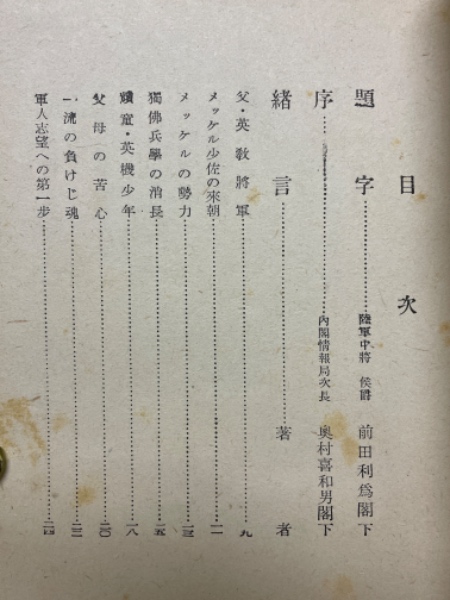 目次
題字……陸軍中將 侯爵 前田利爲閣下
序……內閣情報局次長 奧村喜和男閣下
緖言……著者
父・英敎將軍……九
メッケル少佐の來朝……一一
メッケルの勢力……一三
獨佛兵學の消長……一五
頑童・英機少年……一八
父母の苦心……二〇
一流の負けじ魂……二二
軍人志望への第一步……二四